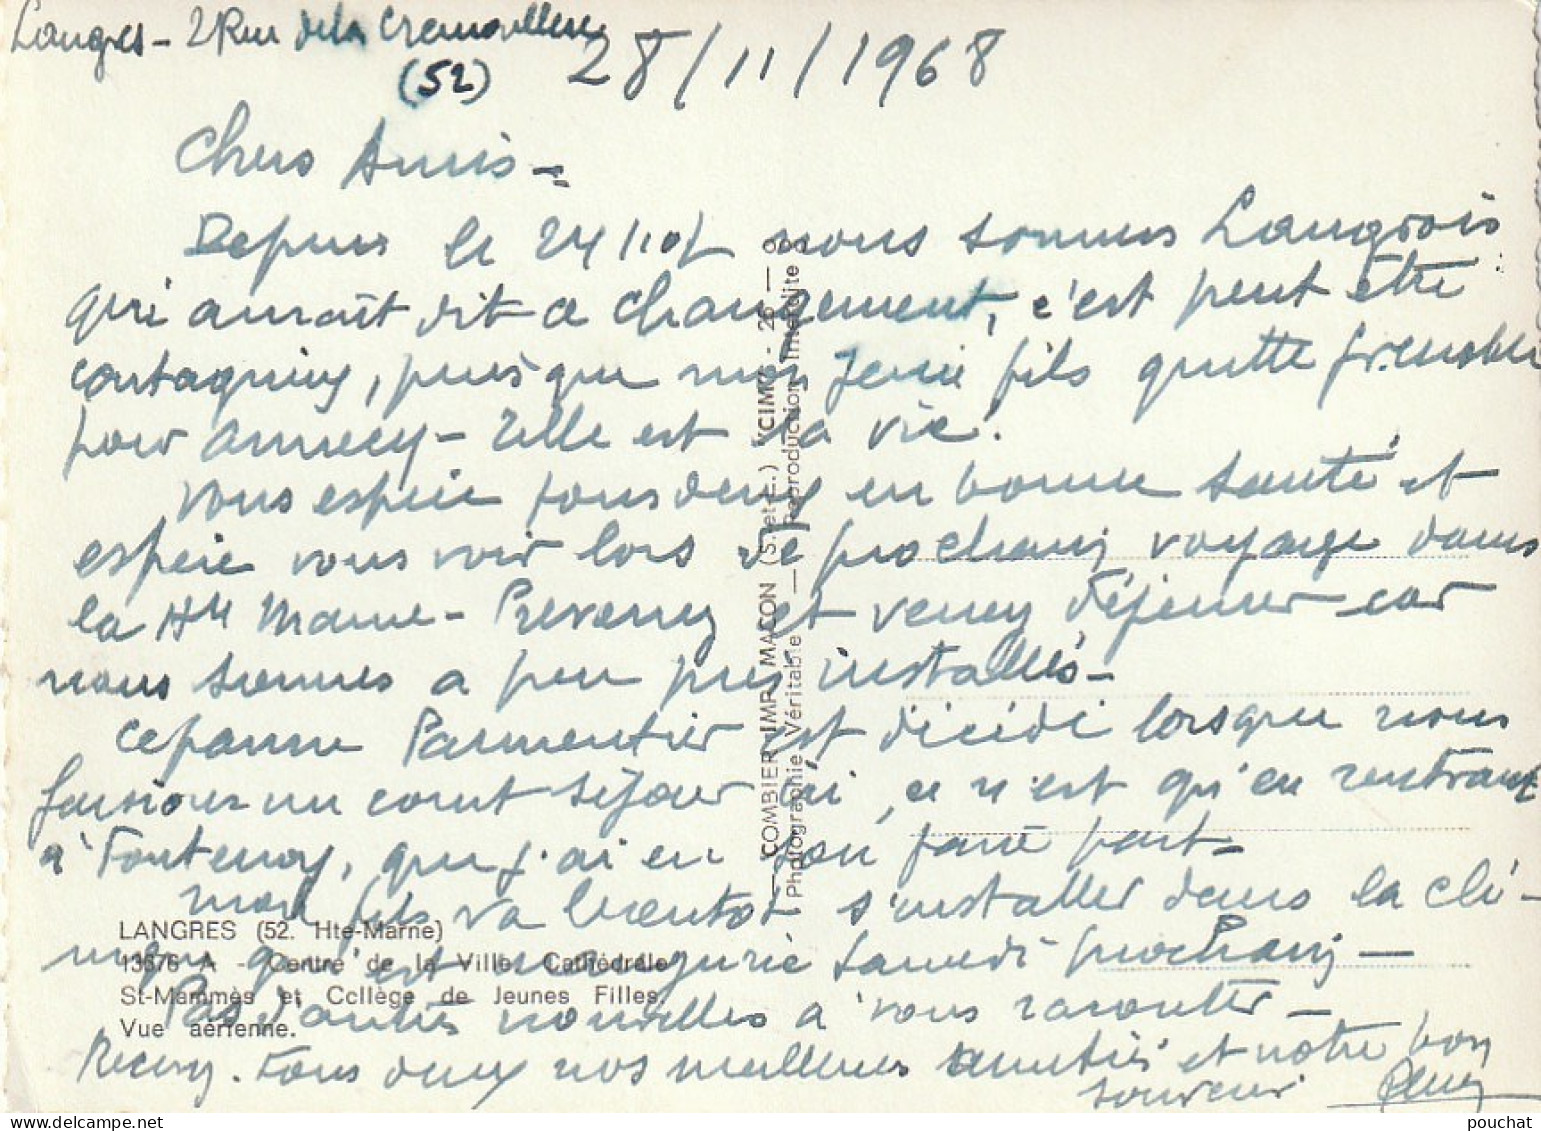 Langres - 2 Rue de la Cremaillere
(52) 28/11/1968
Chers Amis -
Depuis le 24/10/ nous sommes Langrois
qui aurait dit ce changement, c'est peut être
contagieux, puisque mon jeune fils quitte Grenoble
pour Annecy - telle est la vie.
Vous espère tous deux en bonne santé et
espère vous voir lors de prochain voyage dans
la Hte Marne - Prevenez et venez déjeuner car
nous sommes a peu près installés -
Parmentier est décédé lorsque nous
faisions un court séjour ici, ce n'est qu'en rentrant
à Fontenoy, que j'ai eu son faire part -
mon fils va bientot s'installer dans la cli-
nique qui est inaugurée samedi prochain -
Pas d'autres nouvelles a vous raconter -
Recevez tous deux nos meilleures amitiés et notre bon
souvenir
LANGRES (52. Hte-Marne)
13676 A - Centre de la Ville. Cathédrale
St-Mammès et Collège de Jeunes Filles.
Vue aérienne.
— COMBIER IMP. MACON (S.-et-L.) "CIM" - 26 — 9
Photographie Véritable — Reproduction Interdite
delcampe.net
pouchat